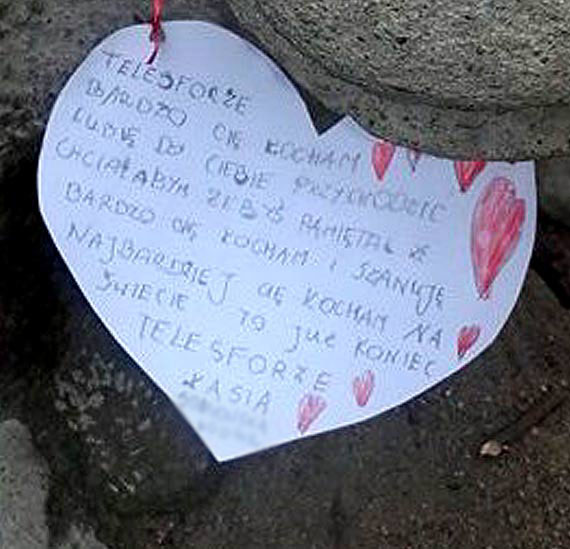 TELESFORZE
BARDZO CIĘ KOCHAM
LUBIĘ DO CIEBIE PRZYCHODZIĆ
CHCIAŁABYM ŻEBYŚ PAMIĘTAŁ ŻE
BARDZO CIĘ KOCHAM I SZANUJĘ
NAJBARDZIEJ CIĘ KOCHAM NA
ŚWIECIE TO JUŻ KONIEC
TELESFORZE
KASIA